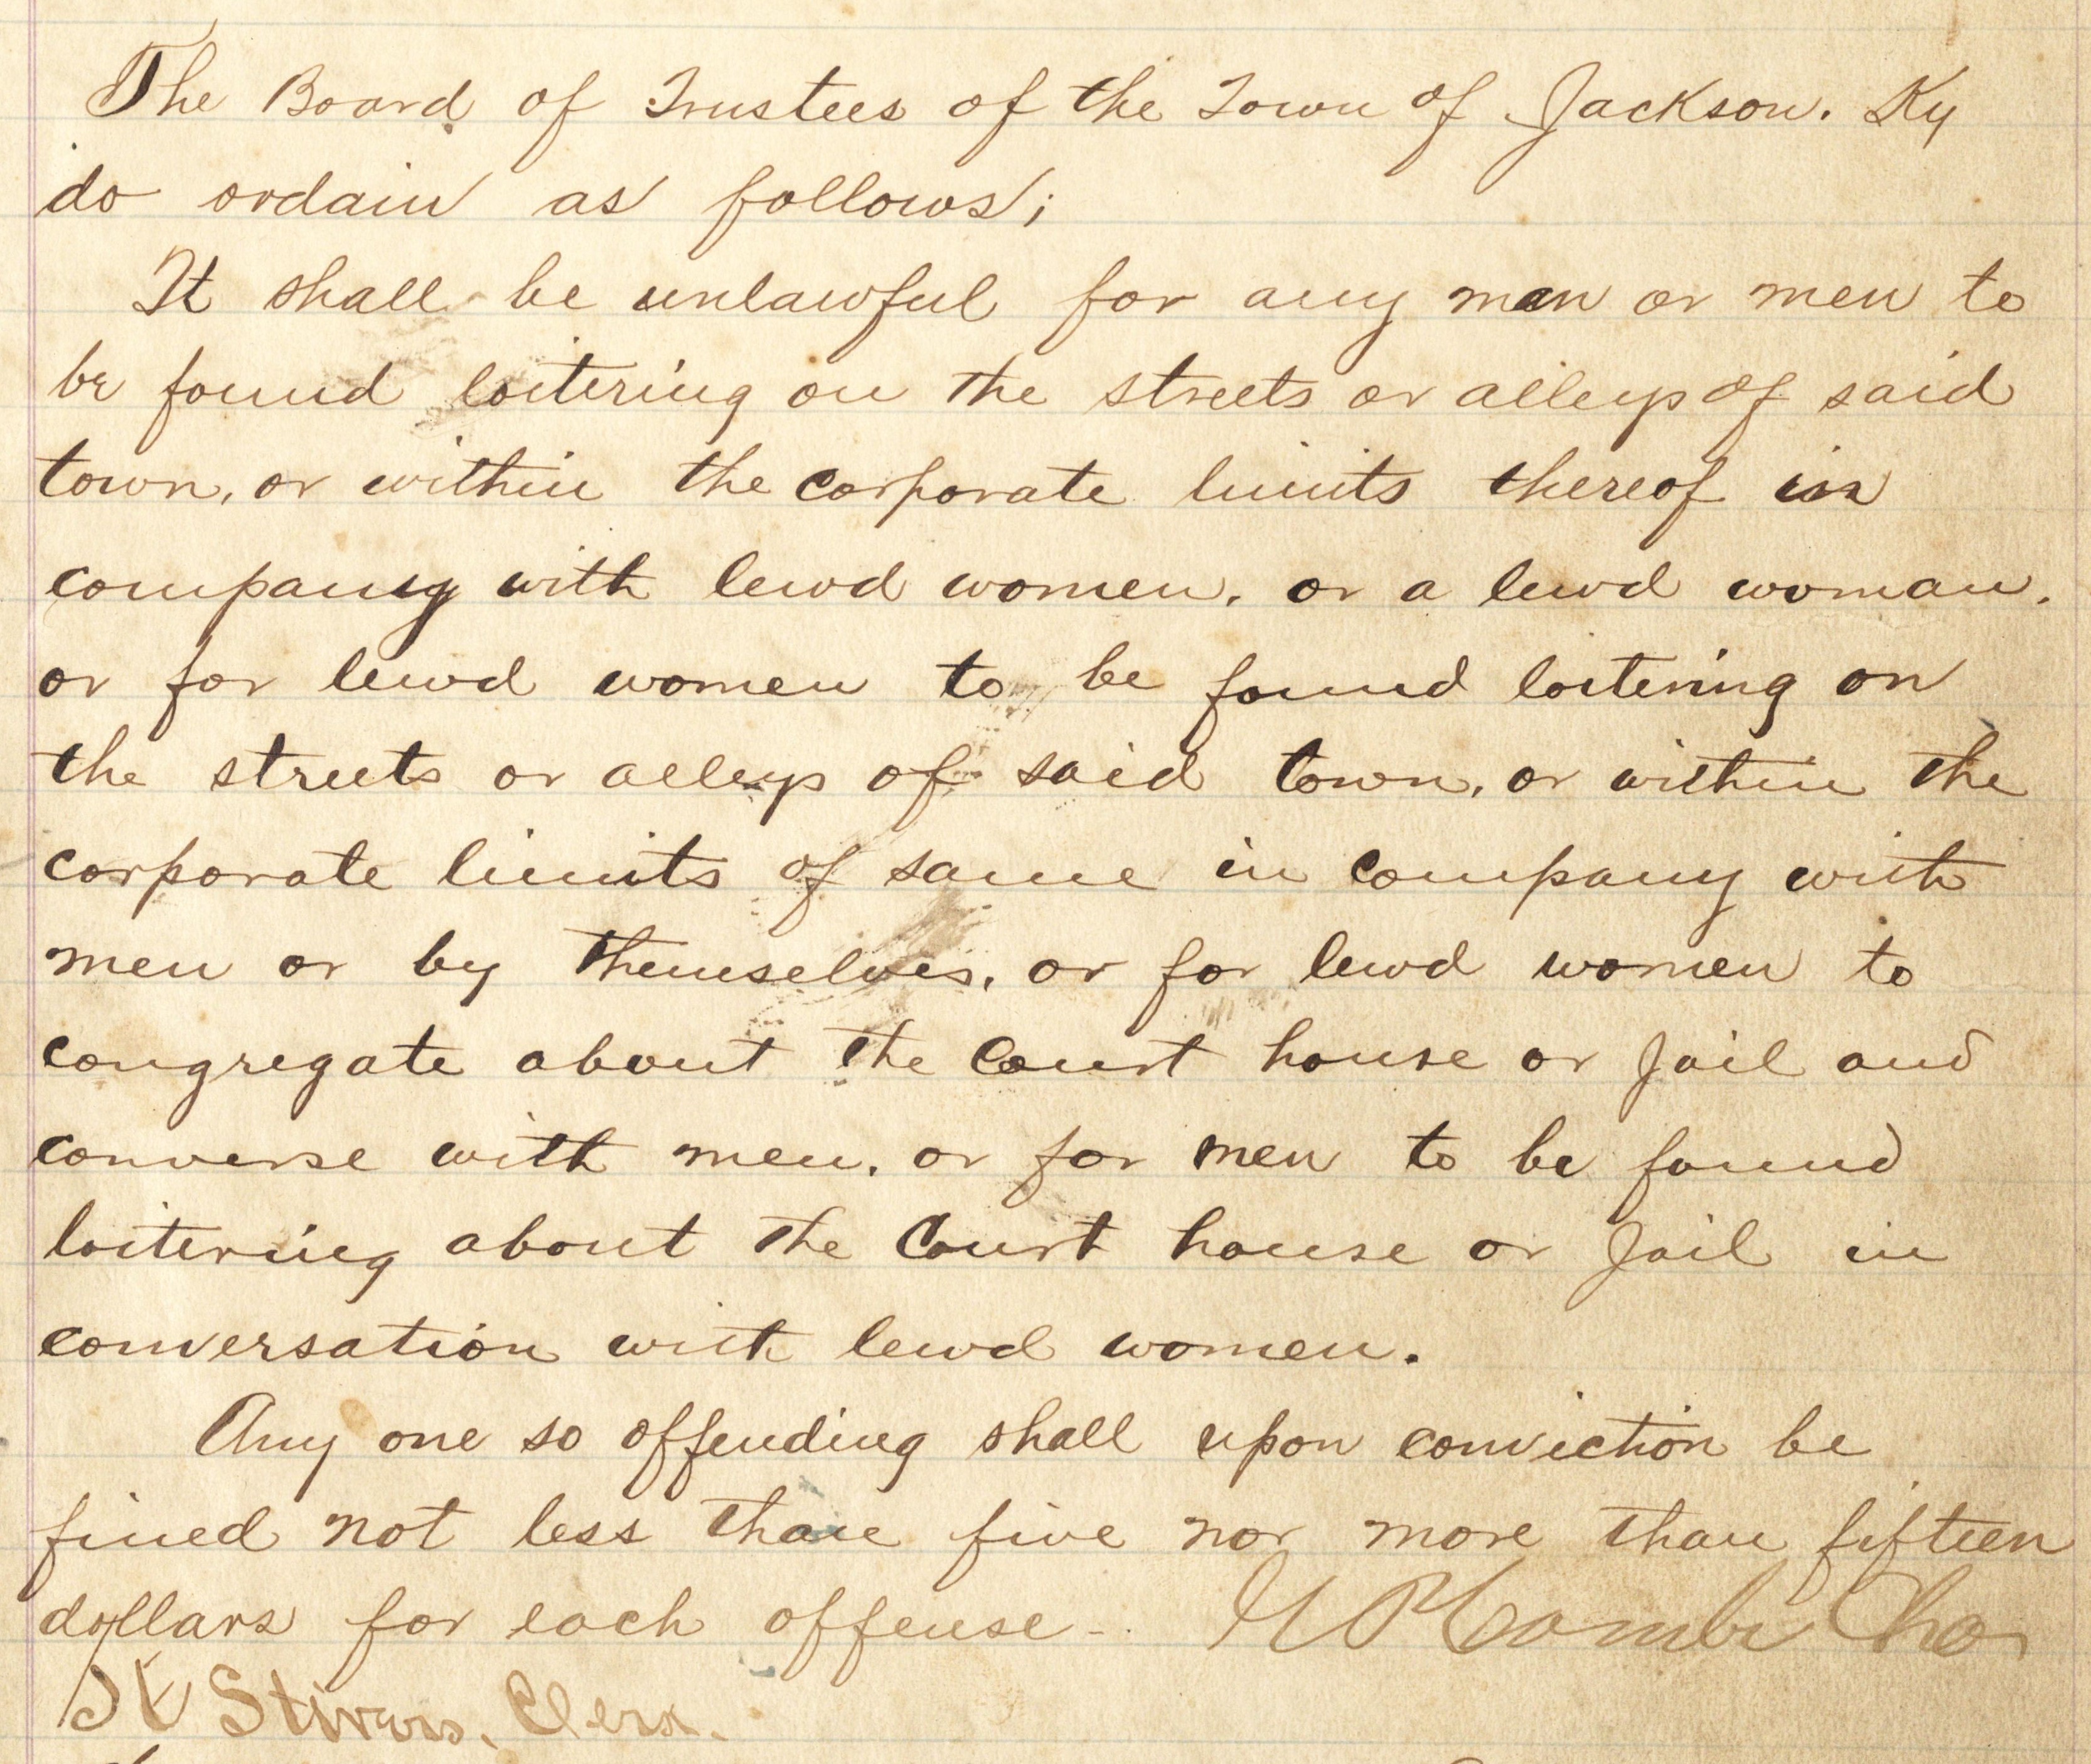 The Board of Trustees of the Town of Jackson. Ky
do ordain as follows;
It shall be unlawful for any man or men to
be found loitering on the streets or alleys of said
town, or within the corporate limits thereof in
company with lewd women, or a lewd woman.
or for lewd women to be found loitering on
the streets or alleys of said town, or within the
corporate limits of same in company with
men or by themselves, or for lewd women to
congregate about the Court house or Jail and
converse with men, or for men to be found
loitering about the Court house or Jail in
conversation with lewd women.
Any one so offending shall upon conviction be
fined not less than five nor more than fifteen
dollars for each offense-
Stivers, Clerk.